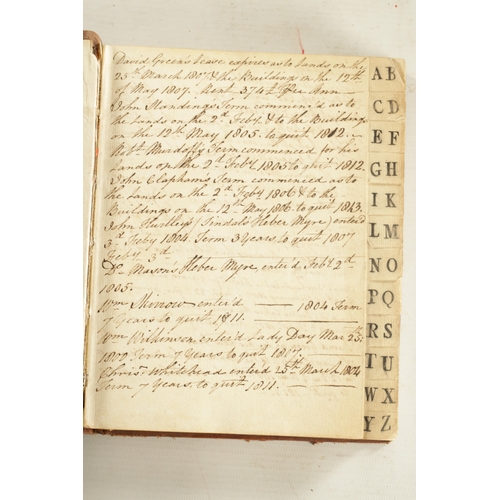 David Green's Lease expires as to Lands on the
25th March 1807 & the Buildings on the 12th
of May 1807. Rent 374£ Per Ann —
John Standing's Term commenc'd as to
the Lands on the 2d Feby & to the Buildings
on the 12th May 1805. to quit 1812. —
Robt. Murdoff Term commenced for his
Lands on the 2d Feby 1805 to quit 1812.
John Clapham's Term commenced as to
the Lands on the 2d Feby 1806 & to the
Buildings on the 12th May 1806 to quit 1813.
John Huntley's (Tindals Heber Myre) enter'd
3d Feby 1804. Term 3 Years to quit 1807
Feby 3d
Dr. Mason's Heber Myre, enter'd Feby 2nd
1805.
Wm enter'd — 1804 Term
7 Years to quit 1811. —
Wm Wilkinson enter'd Lady Day Mar 25th
1800 Term 7 Years to quit 1807. —
Christ. Whitehead enter'd 25th March 1804
Term 7 Years, to quit 1811. —
AB
CD
EF
GH
IK
LM
NO
PQ
RS
TU
WX
YZ